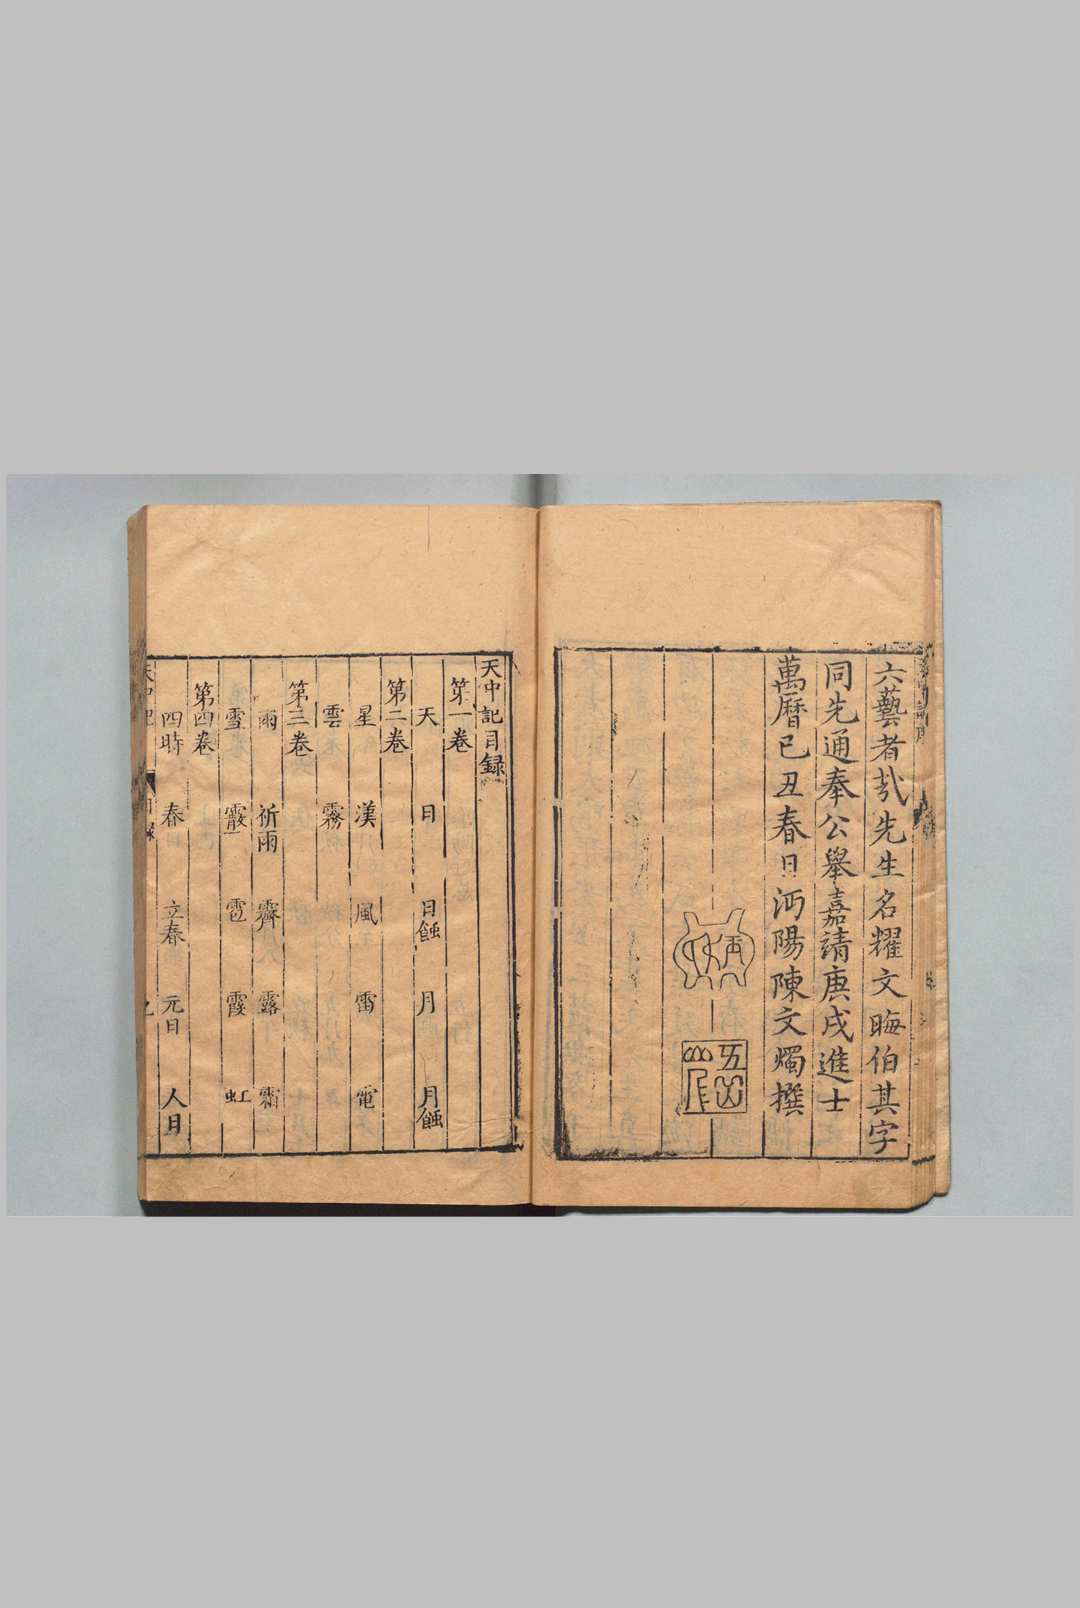 六藝者哉先生名耀文晦伯其字
同先通奉公舉嘉靖庚戌進士
萬曆己丑春日沔陽陳文燭撰
五嶽山人
天中記目録
第一卷
天 日 日蝕 月 月蝕
第二卷
星 漢 風 雷 電
雲 霧
第三卷
雨 祈雨 霽 露 霜
雪 霰 雹 霞 虹
第四卷
四時 春 立春 元日 人日
天中記 目録